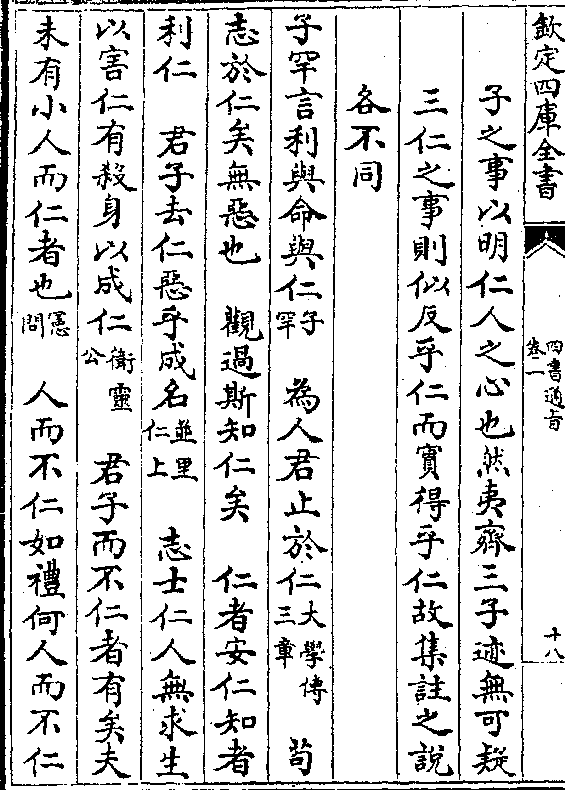 欽定四庫全書
四書通旨
卷二
十八
子之事以明仁人之心也然夷齊三子迹無可疑
三仁之事則似反乎仁而實得乎仁故集註之說
各不同
子罕言利與命與仁子罕　為人君止於仁大學傳三章　苟
志於仁矣無惡也　觀過斯知仁矣　仁者安仁知者
利仁　君子去仁惡乎成名並里仁上　志士仁人無求生
以害仁有殺身以成仁衛靈公　君子而不仁者有矣夫
未有小人而仁者也憲問　人而不仁如禮何人而不仁